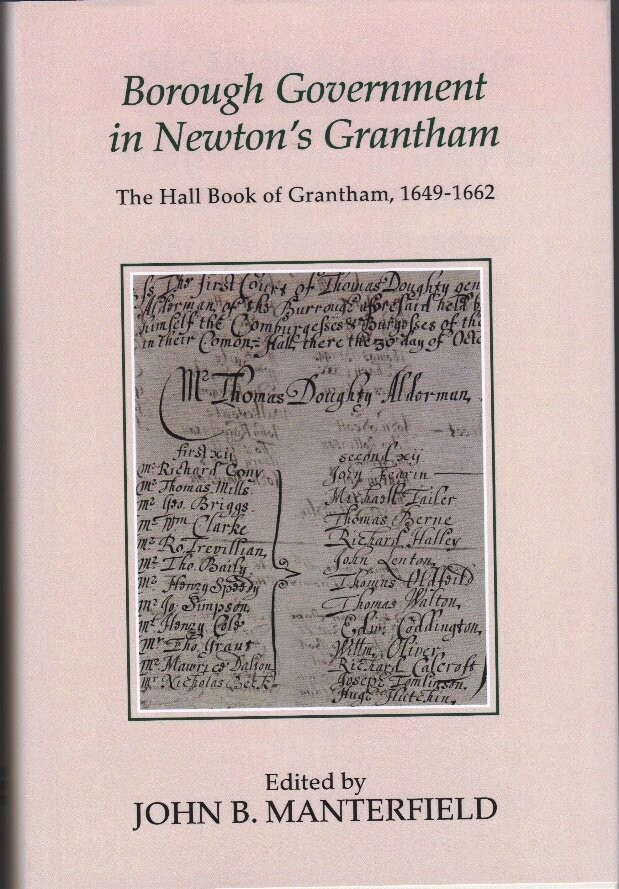 Borough Government
in Newton's Grantham
The Hall Book of Grantham, 1649-1662
The first Court of Thomas Doughty gen
Alderman of the Burrough aforesaid held b
himself the Comburgesses & Burgesses of the
in their Comon Hall there the 30 day of Octo
Mr Thomas Doughty Alderman,
first xij
second xij
mr Richard Cony
mr Thomas Mills
mr Geo. Briggs
mr Wm Clarke
mr Ro Trevillian,
mr Tho Baily
mr Henry Speedy
mr Jo Simpson
mr Henry Cole
mr Tho. Grant
mr Maurice Dalson
mr Nicholas Beck
John
Michaell Tailer
Thomas Berne
Richard Halley
John Lenton,
Thomas
Thomas Walton,
Edw: Coddington,
Willm. Oliver,
Richard Calcroft
Joseph Tomlinson.
Hugh Hutchin,
Edited by
JOHN B. MANTERFIELD